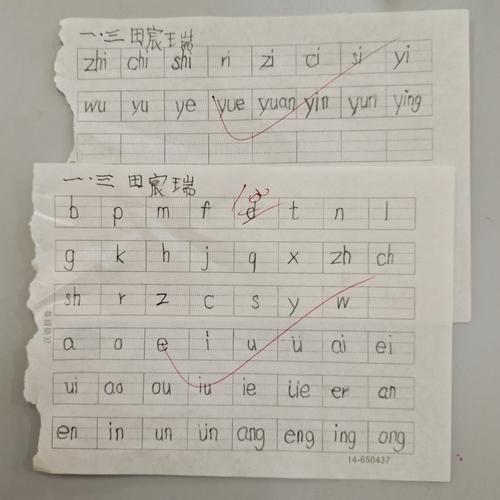 一.三 田宸瑞
zhi chi shi ri zi ci si yi
wu yu ye yue yuan yin yun ying
一.三 田宸瑞
b p m f d t n l
g k h j q x zh ch
sh r z c s y w
a o e i u ü ai ei
ui ao ou iu ie üe er an
en in un ün ang eng ing ong
14-650437